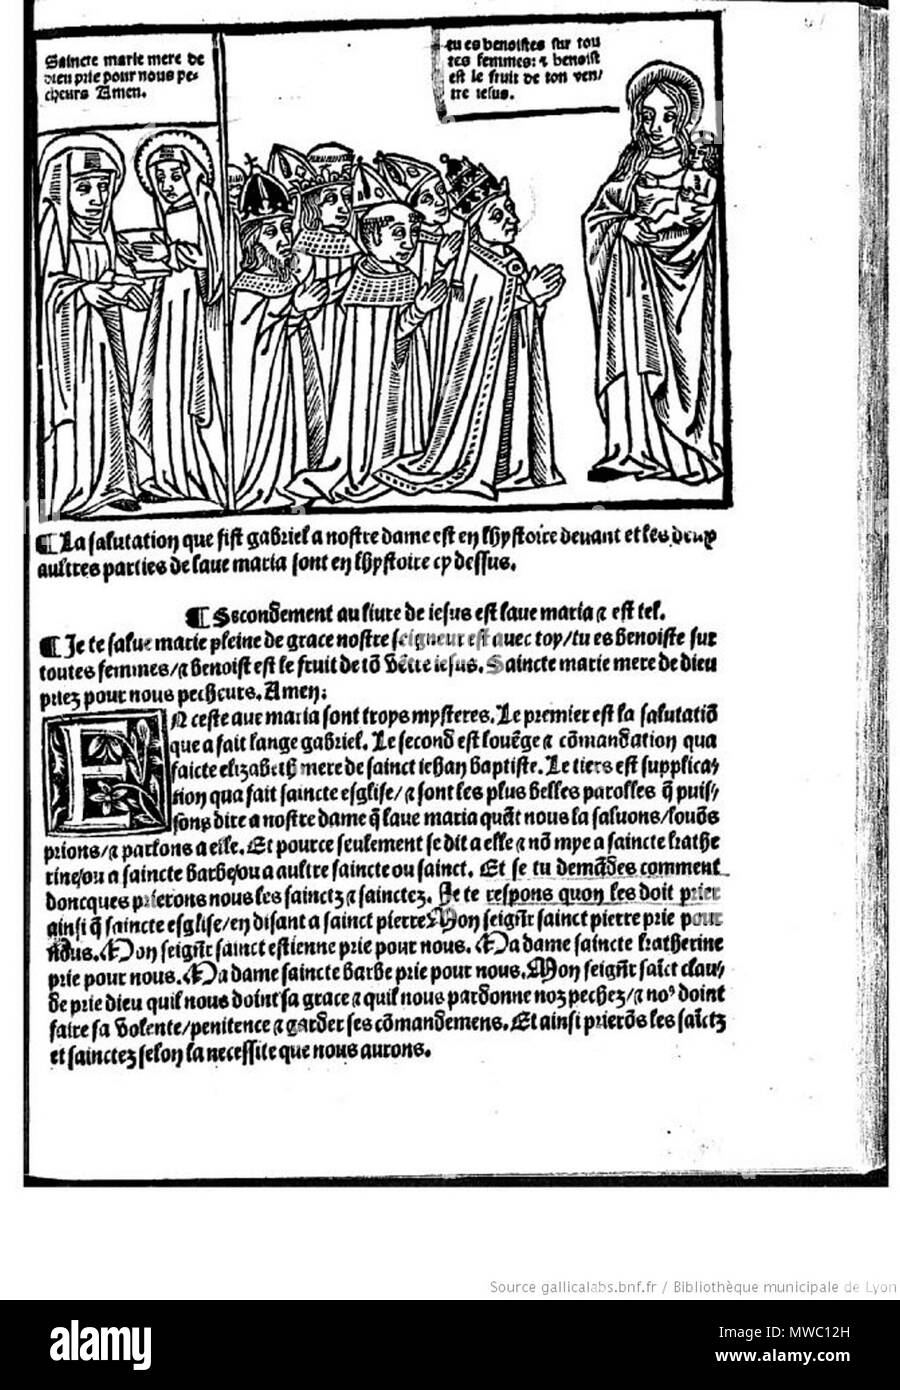 Saincte marie mere de
dieu prie pour nous pe-
cheurs Amen.
tu es benoistes sur tou
tes femmes: ⁊ benoist
est le fruit de ton ven/
tre iesus.
¶ La salutation que fist gabriel a nostre dame est en lhystoire devant et les deux
aultres parties de lave maria sont en lhystoire cy dessus.
¶ Secondement au livre de iesus est lave maria ⁊ est tel.
¶ Je te salue marie pleine de grace nostre seigneur est avec toy/tu es benoiste sur
toutes femmes/⁊ benoist est le fruit de tō vētre iesus. Saincte marie mere de dieu
priez pour nous pecheurs. Amen:
EN ceste ave maria sont troys mysteres. Le premier est la salutatiō
que a fait lange gabriel. Le second est louēge ⁊ cōmandation qua
faicte elizabeth mere de sainct iehan baptiste. Le tiers est supplica/
tion qua fait saincte esglise/⁊ sont les plus belles parolles q̄ puis/
sons dire a nostre dame q̄ lave maria quāt nous la saluons/louōs
prions/⁊ parlons a elle. Et pource seulement se dit a elle ⁊ nō mye a saincte kathe
rine/ou a saincte Barbe/ou a aultre saincte ou sainct. Et se tu demādes comment
doncques prierons nous les sainctz ⁊ sainctez. Je te respons quon les doit prier
ainsi q̄ saincte esglise/en disant a sainct pierre Mon seigñr sainct pierre prie pour
nous. Mon seigñr sainct estienne prie pour nous. Ma dame saincte katherine
prie pour nous. Ma dame saincte barbe prie pour nous. Mon seigñr saīct clau/
de prie dieu quil nous doint sa grace ⁊ quil nous pardonne noz pechez/⁊ noꝰ doint
faire sa volente/penitence ⁊ garder ses cōmandemens. Et ainsi prierōs les saīctz
et sainctez selon la necessite que nous aurons.
Source gallicalabs.bnf.fr / Bibliothèque municipale de Lyon
alamy
Image ID: MWC12H
www.alamy.com